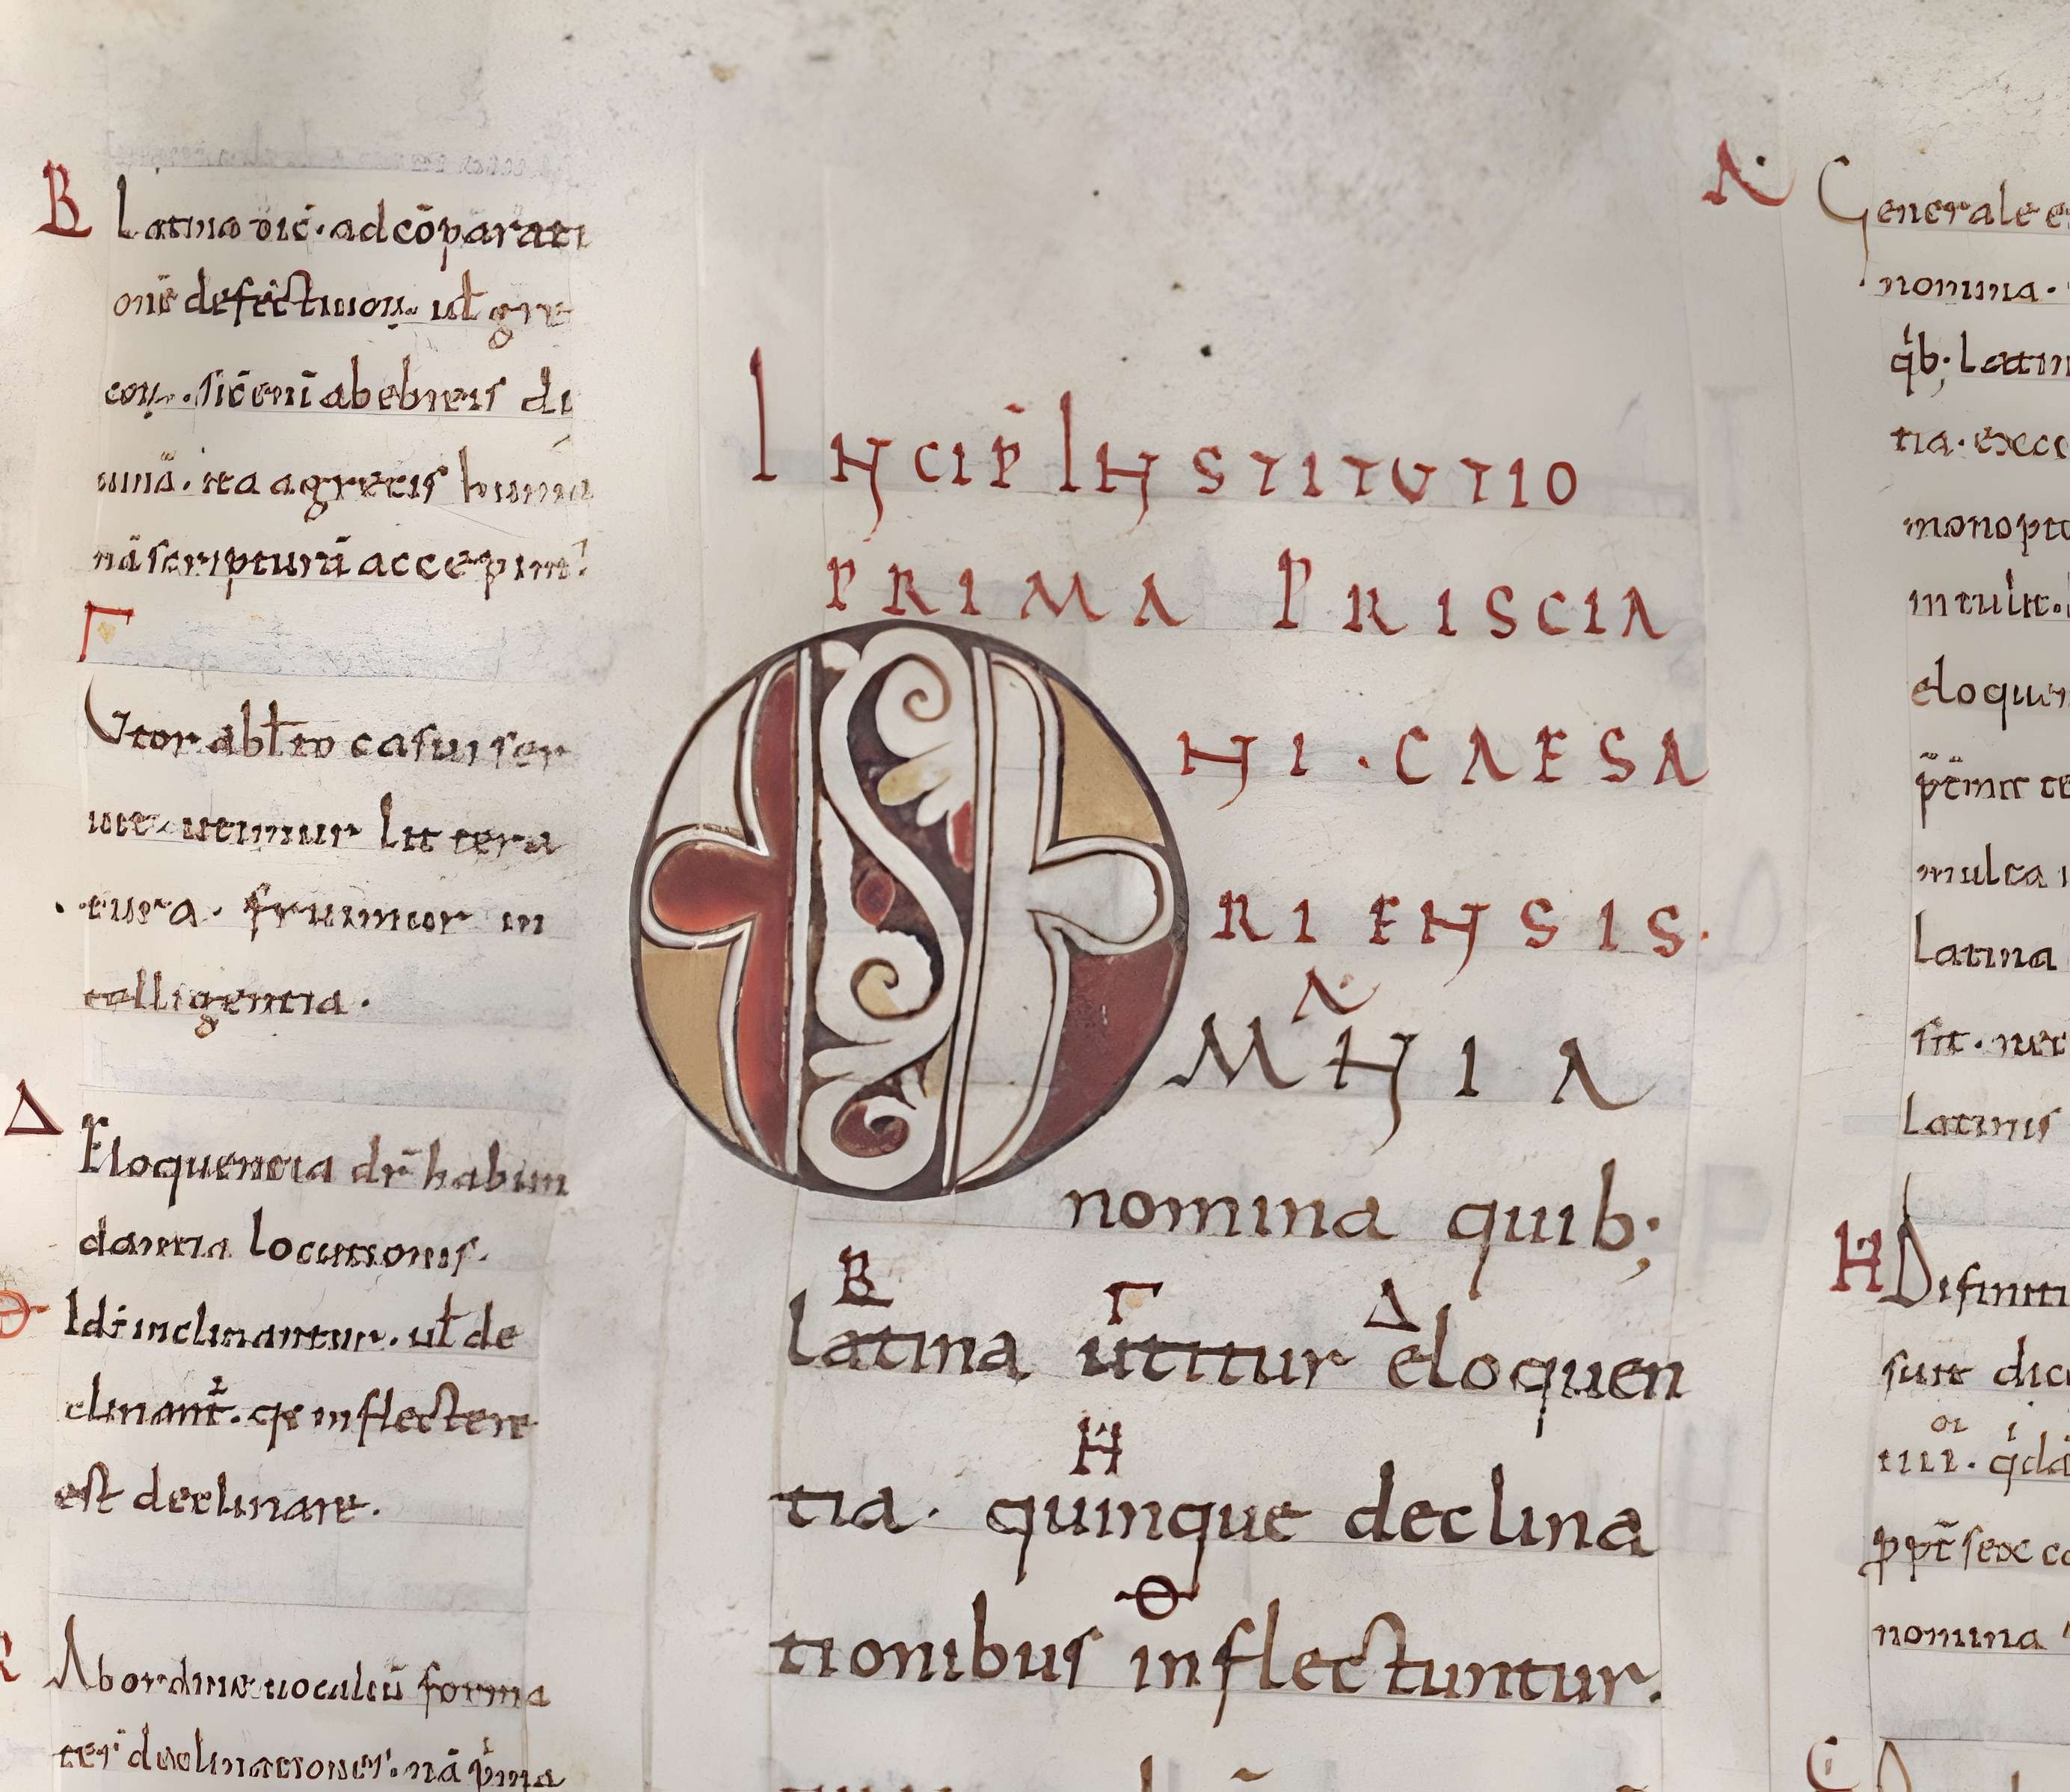 B Latina dic̄· ad cōparati
onē defectiuoꝝ· uł gre
coꝝ· sic̄ enī ab ebreis di
uinā· ita a grecis huma
nā scripturā acceperīt
Γ
Vtor ablto casui ser
uit· utimur littera
tura· fruimur in
telligentia·
Δ Eloquentia dr̄ habun
dantia locutionis·
Θ Id· inclinantur· uł de
clinant᷑· qr inflectere
est declinare·
Ab ordine uocaliū forma
ter declinationes· nā pima
INCIP̄ INSTITUTIO
PRIMA PRISCIA
NI· CAESA
RIENSIS·
A
OMNIA
nomina quib;
B Γ Δ
latina utitur eloquen
H
tia· quinque declina
Θ
tionibus inflectuntur·
A Generale e
nomina·
qͥb; latin
tia· exce
monopto
intulit·
eloquen
multa
latina
sit· nec
latinis
H Difiniti
sunt dic
oꝛ i
p̱ pt̄ sex c
nomina